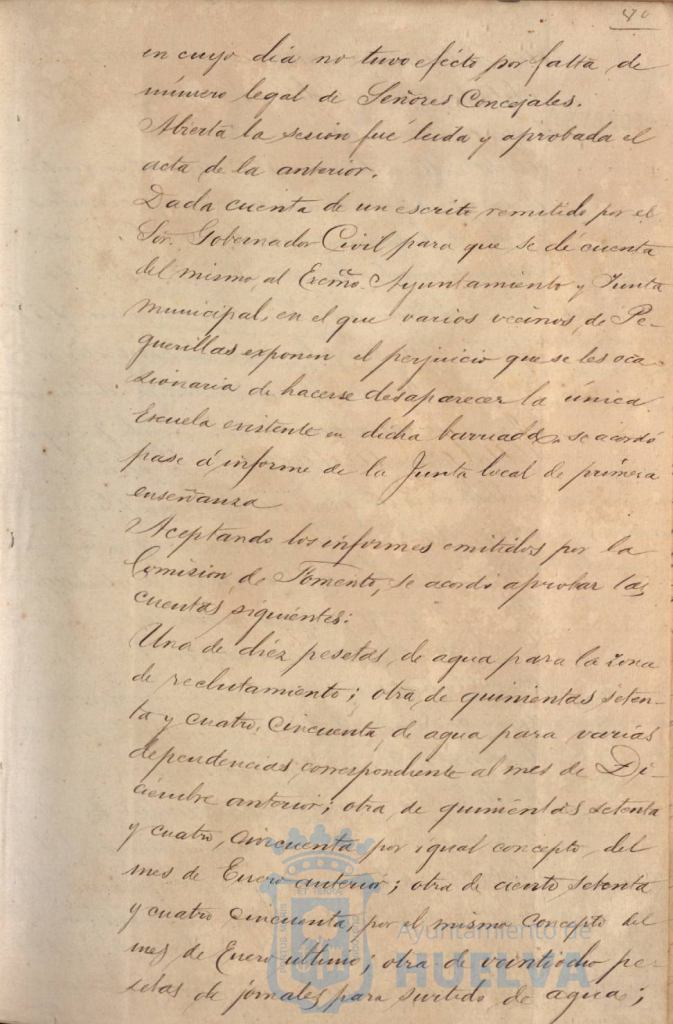 en cuyo dia no tuvo efécto por falta de
número legal de Señores Concejales.
Abierta la sesión fué leida y aprobada el
acta de la anterior.
Dada cuenta de un escrito remitido por el
Sor. Gobernador Civil, para que se dé cuenta
del mismo, al Excmo. Ayuntamiento y Junta
municipal, en el que varios vecinos, de Pe-
guerillas exponen el perjuicio que se les oca-
sionaria de hacerse desaparecer la única
Escuela existente en dicha barriada, se acordó
pase á informe de la Junta local de primera
enseñanza
Aceptando los informes emitidos por la
Comision de Fomento, se acordó aprobar las
cuentas siguientes:
Una de diéz pesetas, de agua para la zona
de reclutamiento; otra, de quinientas seten-
ta y cuatro, cincuenta, de agua para varias
dependencias, correspondiente al mes de Di-
ciembre anterior; otra, de quinientas setenta
y cuatro, cincuenta, por igual concepto, del
mes de Enero anterior; otra de ciento setenta
y cuatro cincuenta, por el mismo concepto del
mes de Enero último; otra de veintiocho pe-
setas de jornales para surtido de aguas;
Ayuntamiento de
HUELVA